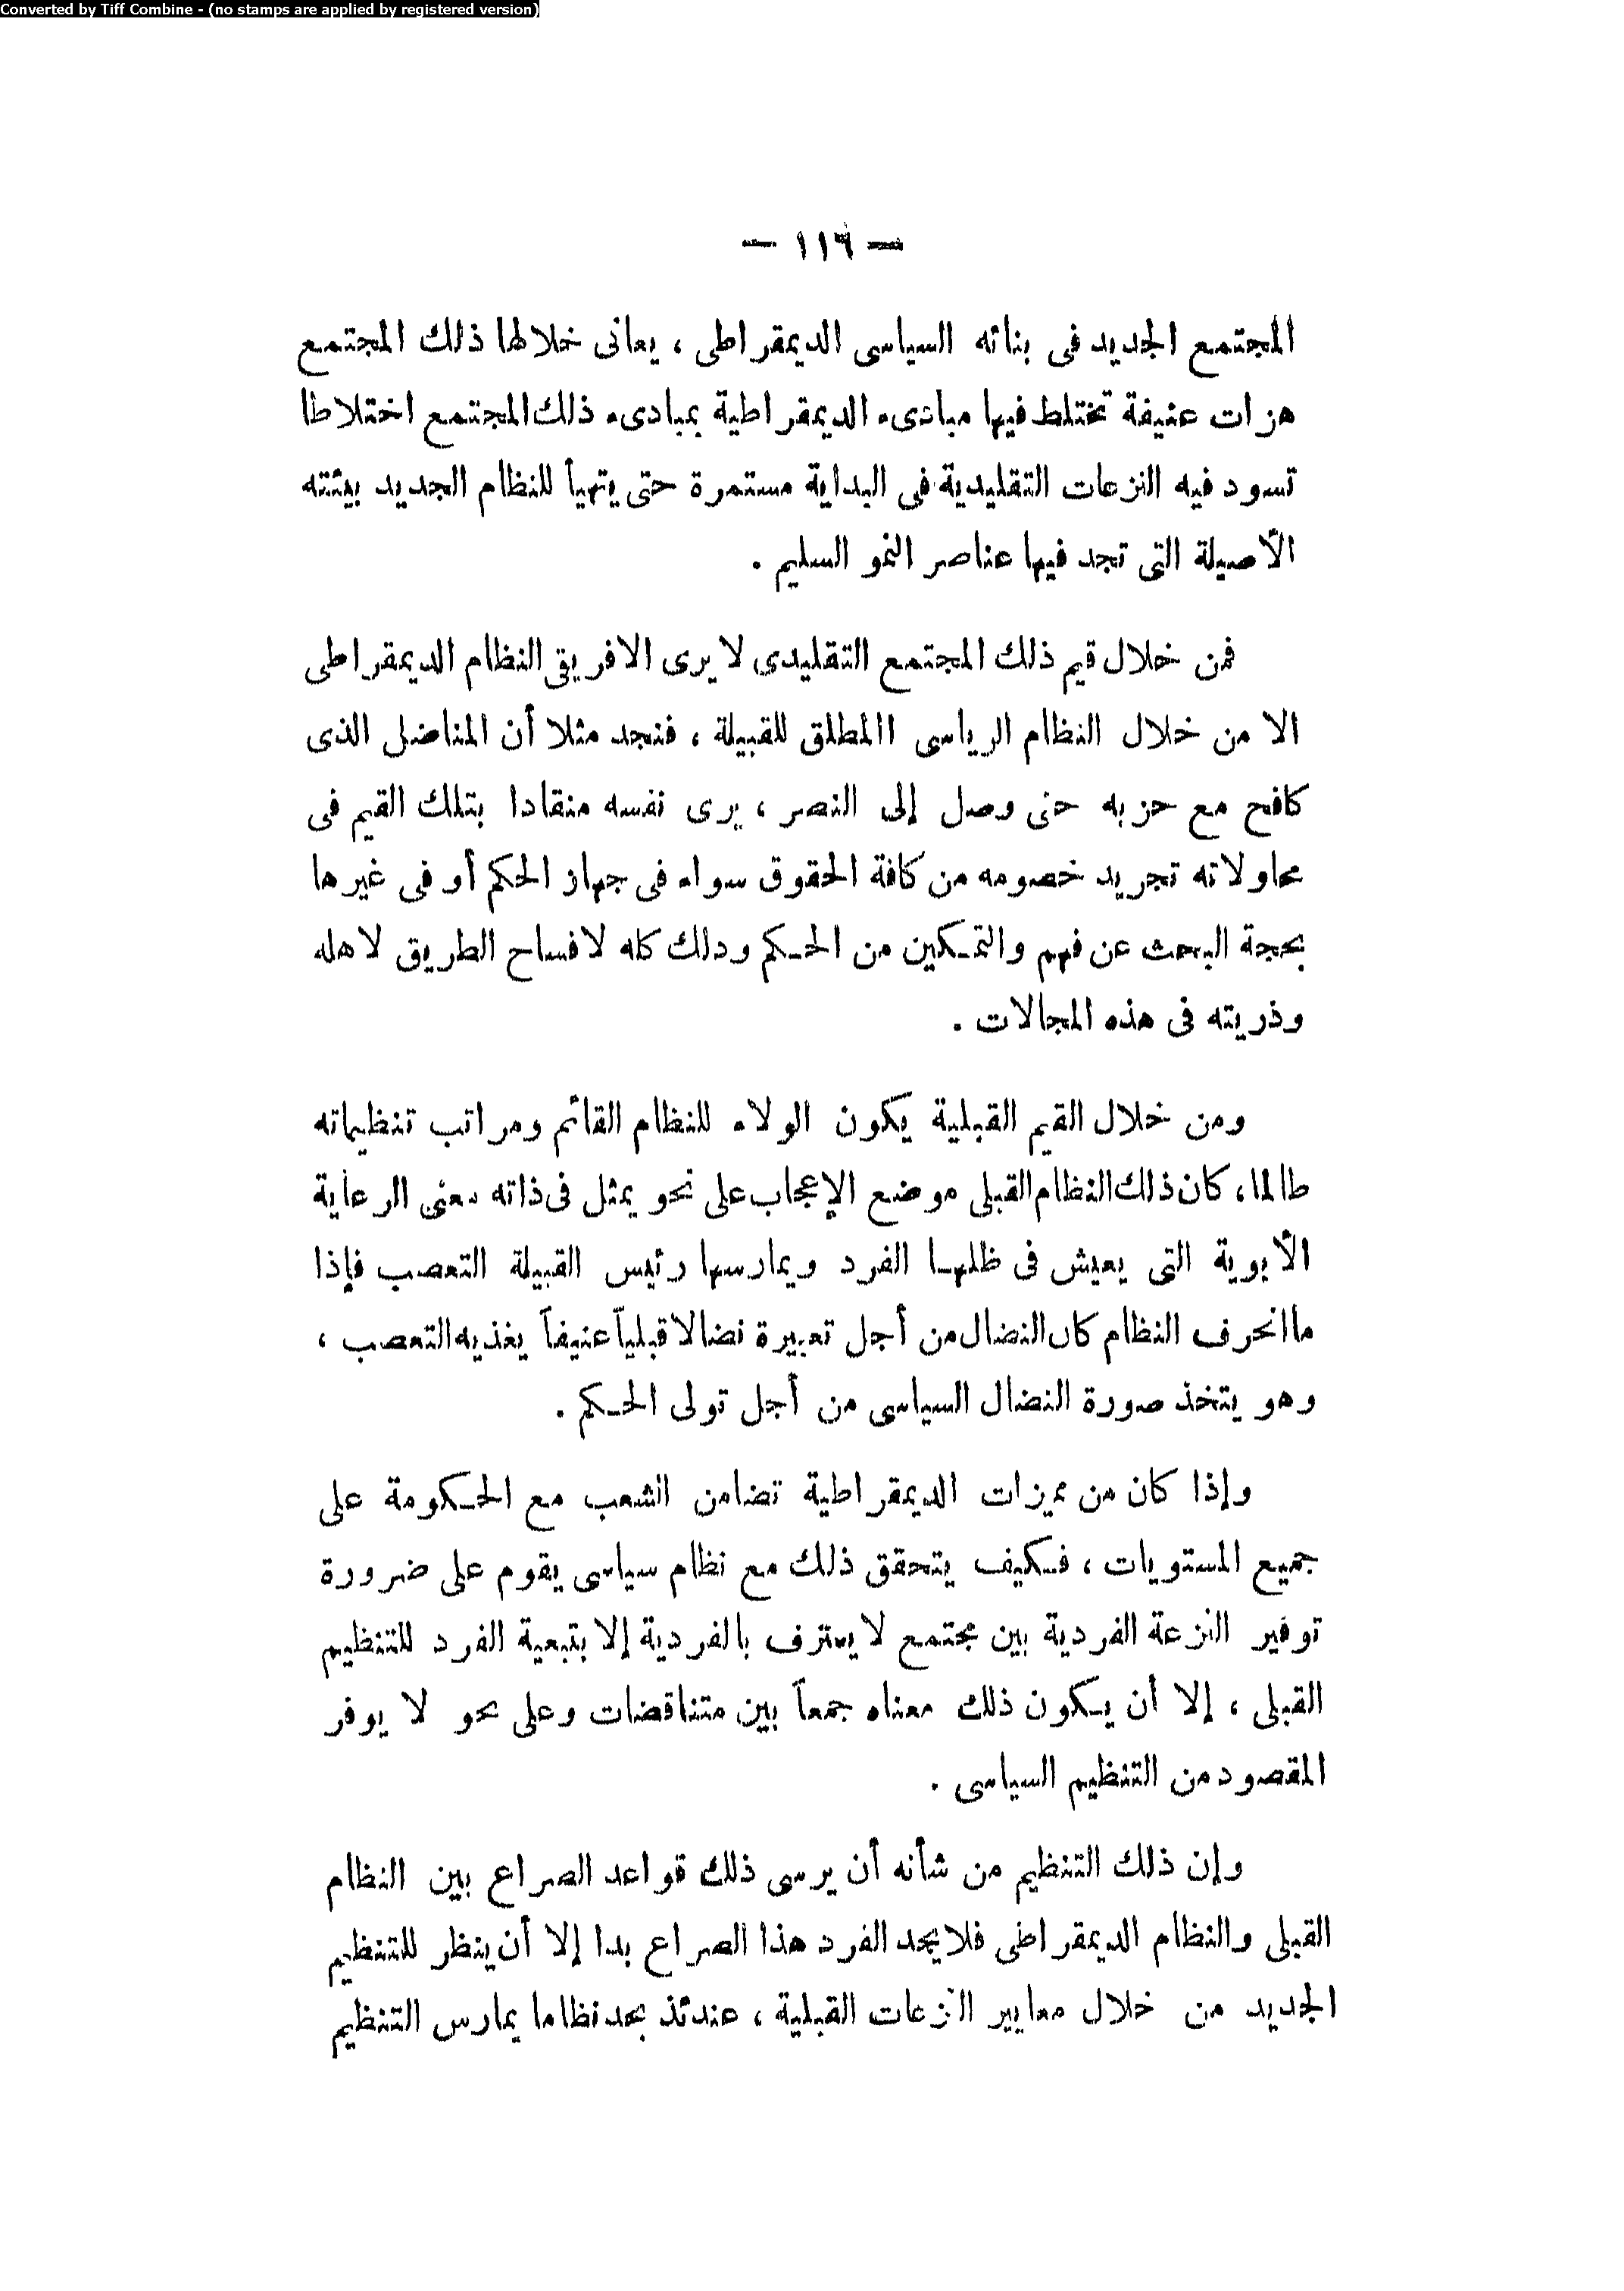 Converted by Tiff Combine - (no stamps are applied by registered version)
— ١١٦ —
المجتمع الجديد فى بنائه السياسى الديمقراطى ، يعانى خلالها ذلك المجتمع
هزات عنيفة تختلط فيها مبادىء الديمقراطية بمبادىء ذلك المجتمع اختلاطا
تسود فيه النزعات التقليدية فى البداية مستمرة حتى يتهيأ للنظام الجديد بيئته
الأصيلة التى تجد فيها عناصر النمو السليم .
فمن خلال قيم ذلك المجتمع التقليدى لا يرى الافريقى النظام الديمقراطى
الا من خلال النظام الرياسى االمطلق للقبيلة ، فنجد مثلا أن المناضل الذى
كافح مع حزبه حتى وصل إلى النصر ، يرى نفسه منقادا بتلك القيم فى
محاولاته تجريد خصومه من كافة الحقوق سواء فى جهاز الحكم أو فى غيرها
بحجة البحث عن فهم والتمكين من الحكم ودلك كله لافساح الطريق لاهله
وذريته فى هذه المجالات .
ومن خلال القيم القبلية يكون الولاء للنظام القائم ومراتب تنظيماته
طالما ، كان ذلك النظام القبلى موضع الإعجاب على نحو يمثل فى ذاته معنى الرعاية
الأبوية التى يعيش فى ظلها الفرد ويمارسها رئيس القبيلة التعصب فإذا
ما انحرف النظام كان النضال من أجل تعبيرة نضالا قبلياً عنيفاً يغذيه التعصب ،
وهو يتخذ صورة النضال السياسى من أجل تولى الحكم .
وإذا كان من مميزات الديمقراطية تضامن الشعب مع الحكومة على
جميع المستويات ، فكيف يتحقق ذلك مع نظام سياسى يقوم على ضرورة
توفير النزعة الفردية بين مجتمع لا يعترف بالفردية إلا بتبعية الفرد للتنظيم
القبلى ، إلا أن يكون ذلك معناه جمعاً بين متناقضات وعلى نحو لا يوفر
المقصود من التنظيم السياسى .
وإن ذلك التنظيم من شأنه أن يرسى ذلك قواعد الصراع بين النظام
القبلى والنظام الديمقراطى فلا يجد الفرد هذا الصراع بدا إلا أن ينظر للتنظيم
الجديد من خلال معايير النزعات القبلية ، عندئذ يجد نظاما يمارس التنظيم